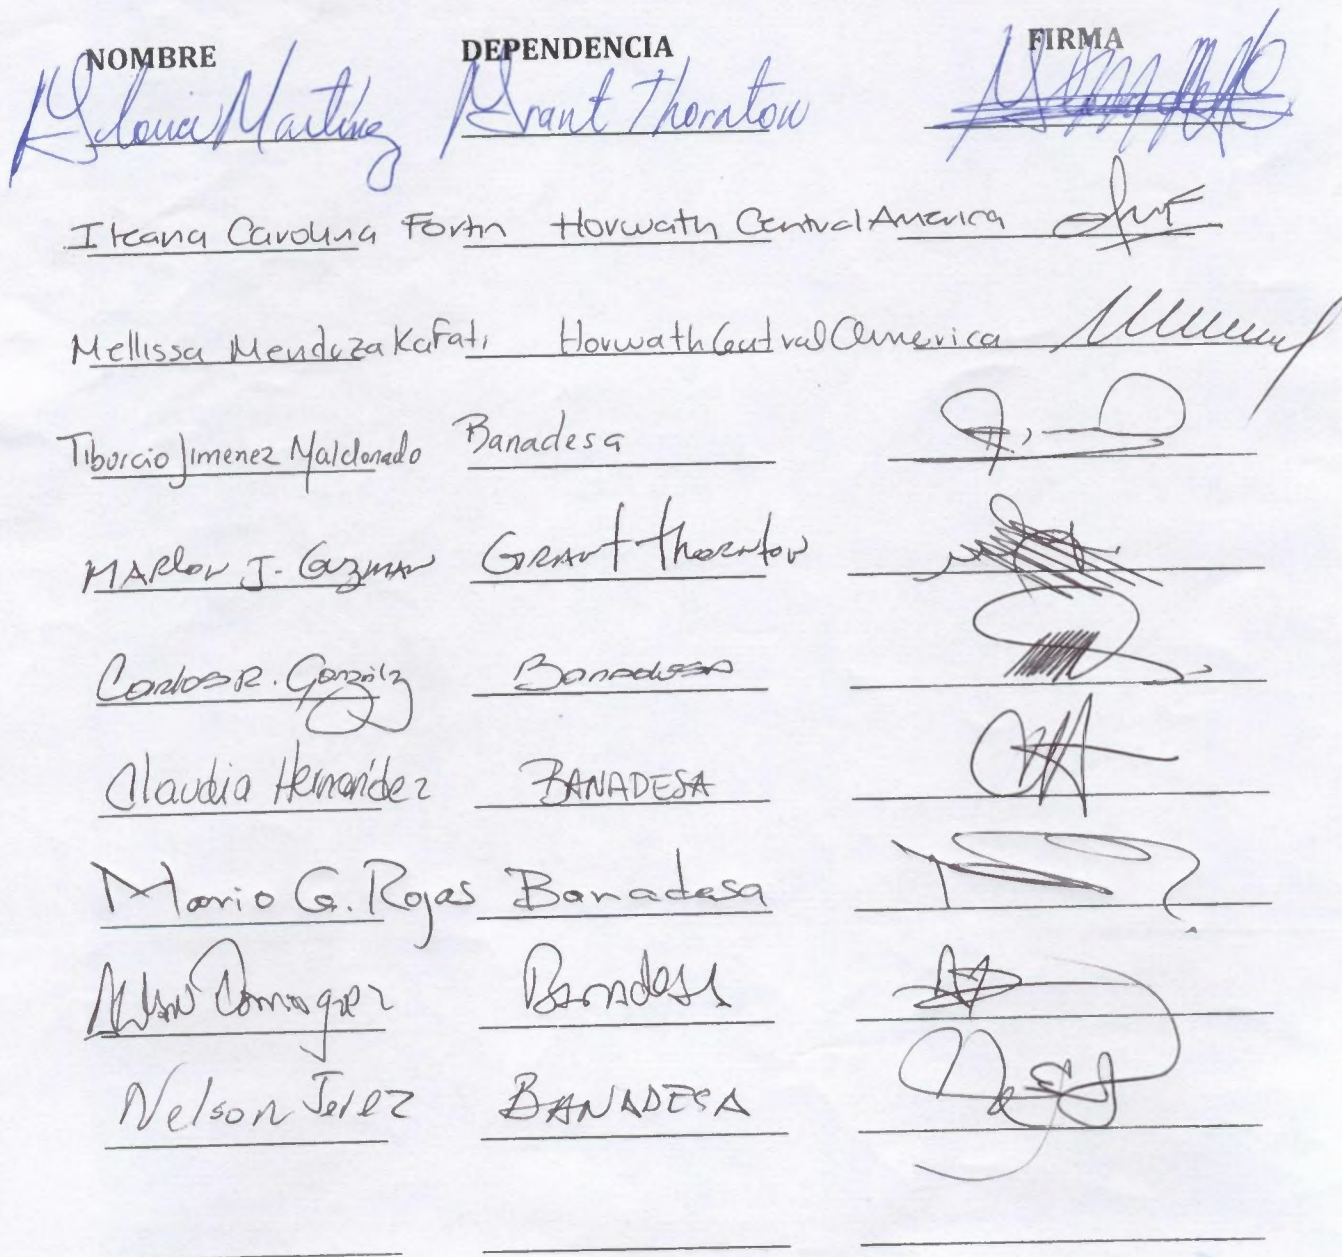 NOMBRE DEPENDENCIA FIRMA
Gloria Martinez Grant Thornton
Ileana Carolina Fortin Horwath Central America
Mellissa Mendoza Kafati Horwath Central America
Tiburcio Jimenez Maldonado Banadesa
MARlon J. Guzman GRANT Thornton
Carlos R. González Banadesa
Claudia Hernández BANADESA
Mario G. Rojas Banadesa
Banadesa
Nelson Jerez BANADESA